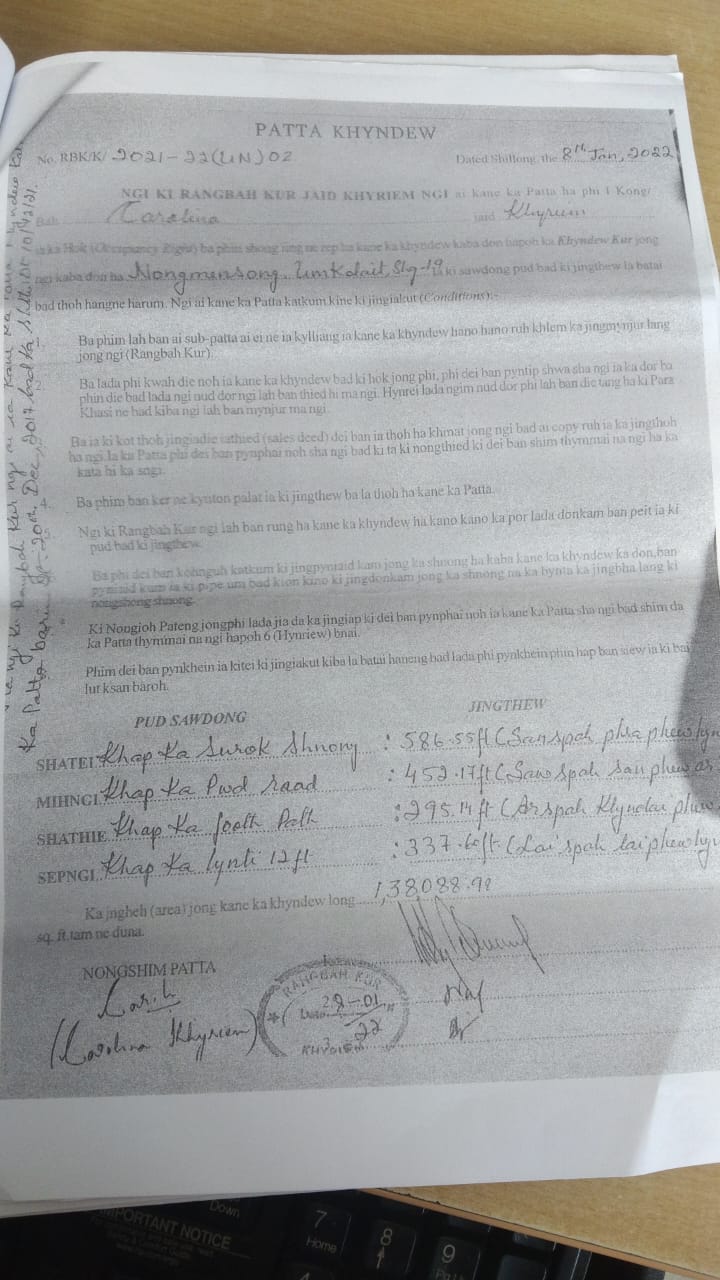 PATTA KHYNDEW
No. RBK/K/ 2021-22(UN)02 Dated Shillong, the 8th Jan, 2022
NGI KI RANGBAH KUR JAID KHYRIEM NGI ai kane ka Patta ha phi I Kong/
Bah Carolina jaid Khyriem
ia ka Hok (Occupancy Right) ba phin shong ing ne rep ha kane ka khyndew kaba don hapoh ka Khyndew Kur jong
ngi kaba don ha Nongmensong, Umkdait, Slg-19 ia ki sawdong pud bad ki jingthew la batai
bad thoh hangne harum. Ngi ai kane ka Patta katkum kine ki jingiakut (Conditions):-
Ba phim lah ban ai sub-patta ai ei ne ia kylliang ia kane ka khyndew hano hano ruh khlem ka jingmynjur lang
jong ngi (Rangbah Kur).
Ba lada phi kwah die noh ia kane ka khyndew bad ki hok jong phi, phi dei ban pyntip shwa sha ngi ia ka dor ba
phin die bad lada ngi nud dor ngi lah ban thied hi ma ngi. Hynrei lada ngim nud dor phi lah ban die tang ha ki Para
Khasi ne bad kiba ngi lah ban mynjur ma ngi.
Ba ia ki kot thoh jingiadie iathied (sales deed) dei ban ia thoh ha khmat jong ngi bad ai copy ruh ia ka jingthoh
ha ngi. Ia ka Patta phi dei ban pynphai noh sha ngi bad ki ta ki nongthied ki dei ban shim thymmai na ngi ha ka
kata hi ka sngi.
Ba phim ban ker ne kynton palat ia ki jingthew ba la thoh ha kane ka Patta.
Ngi ki Rangbah Kur ngi lah ban rung ha kane ka khyndew ha kano kano ka por lada donkam ban peit ia ki
pud bad ki jingthew.
Ba phi dei ban kohnguh katkum ki jingpyniaid kam jong ka shnong ha kaba kane ka khyndew ka don, ban
pyniaid kum ia ki pipe um bad kion kino ki jingdonkam jong ka shnong na ka bynta ka jingbha lang ki
nongshong shnong.
Ki Nongioh Pateng jongphi lada jia da ka jingiap ki dei ban pynphai noh ia kane ka Patta sha ngi bad shim da
ka Patta thymmai na ngi hapoh 6 (Hynriew) bnai.
Phim dei ban pynkhein ia kitei ki jingiakut kiba la batai haneng bad lada phi pynkhein phin hap ban siew ia ki bai
lut ksan baroh.
PUD SAWDONG JINGTHEW
SHATEI Khap Ka Surok Shnong : 586.55ft (San spah phra phew
MIHNGI Khap Ka Pwd raad : 452.17ft (Saw spah san phew ar
SHATHIE Khap Ka footh Path : 295.14 ft (Ar spah Khyndai phew
SEPNGI Khap Ka lynti 12ft : 337.60ft (Lai spah lai phew
Ka jngheh (area) jong kane ka khyndew long 1,38,088.90
sq. ft. tam ne duna.
NONGSHIM PATTA
(Carolina Khyriem)
RANGBAH KUR
Date 28-01
22
KHYRIEM
Ka Patta barim
20th, Dec, 2017 bad ka
10/12/21.